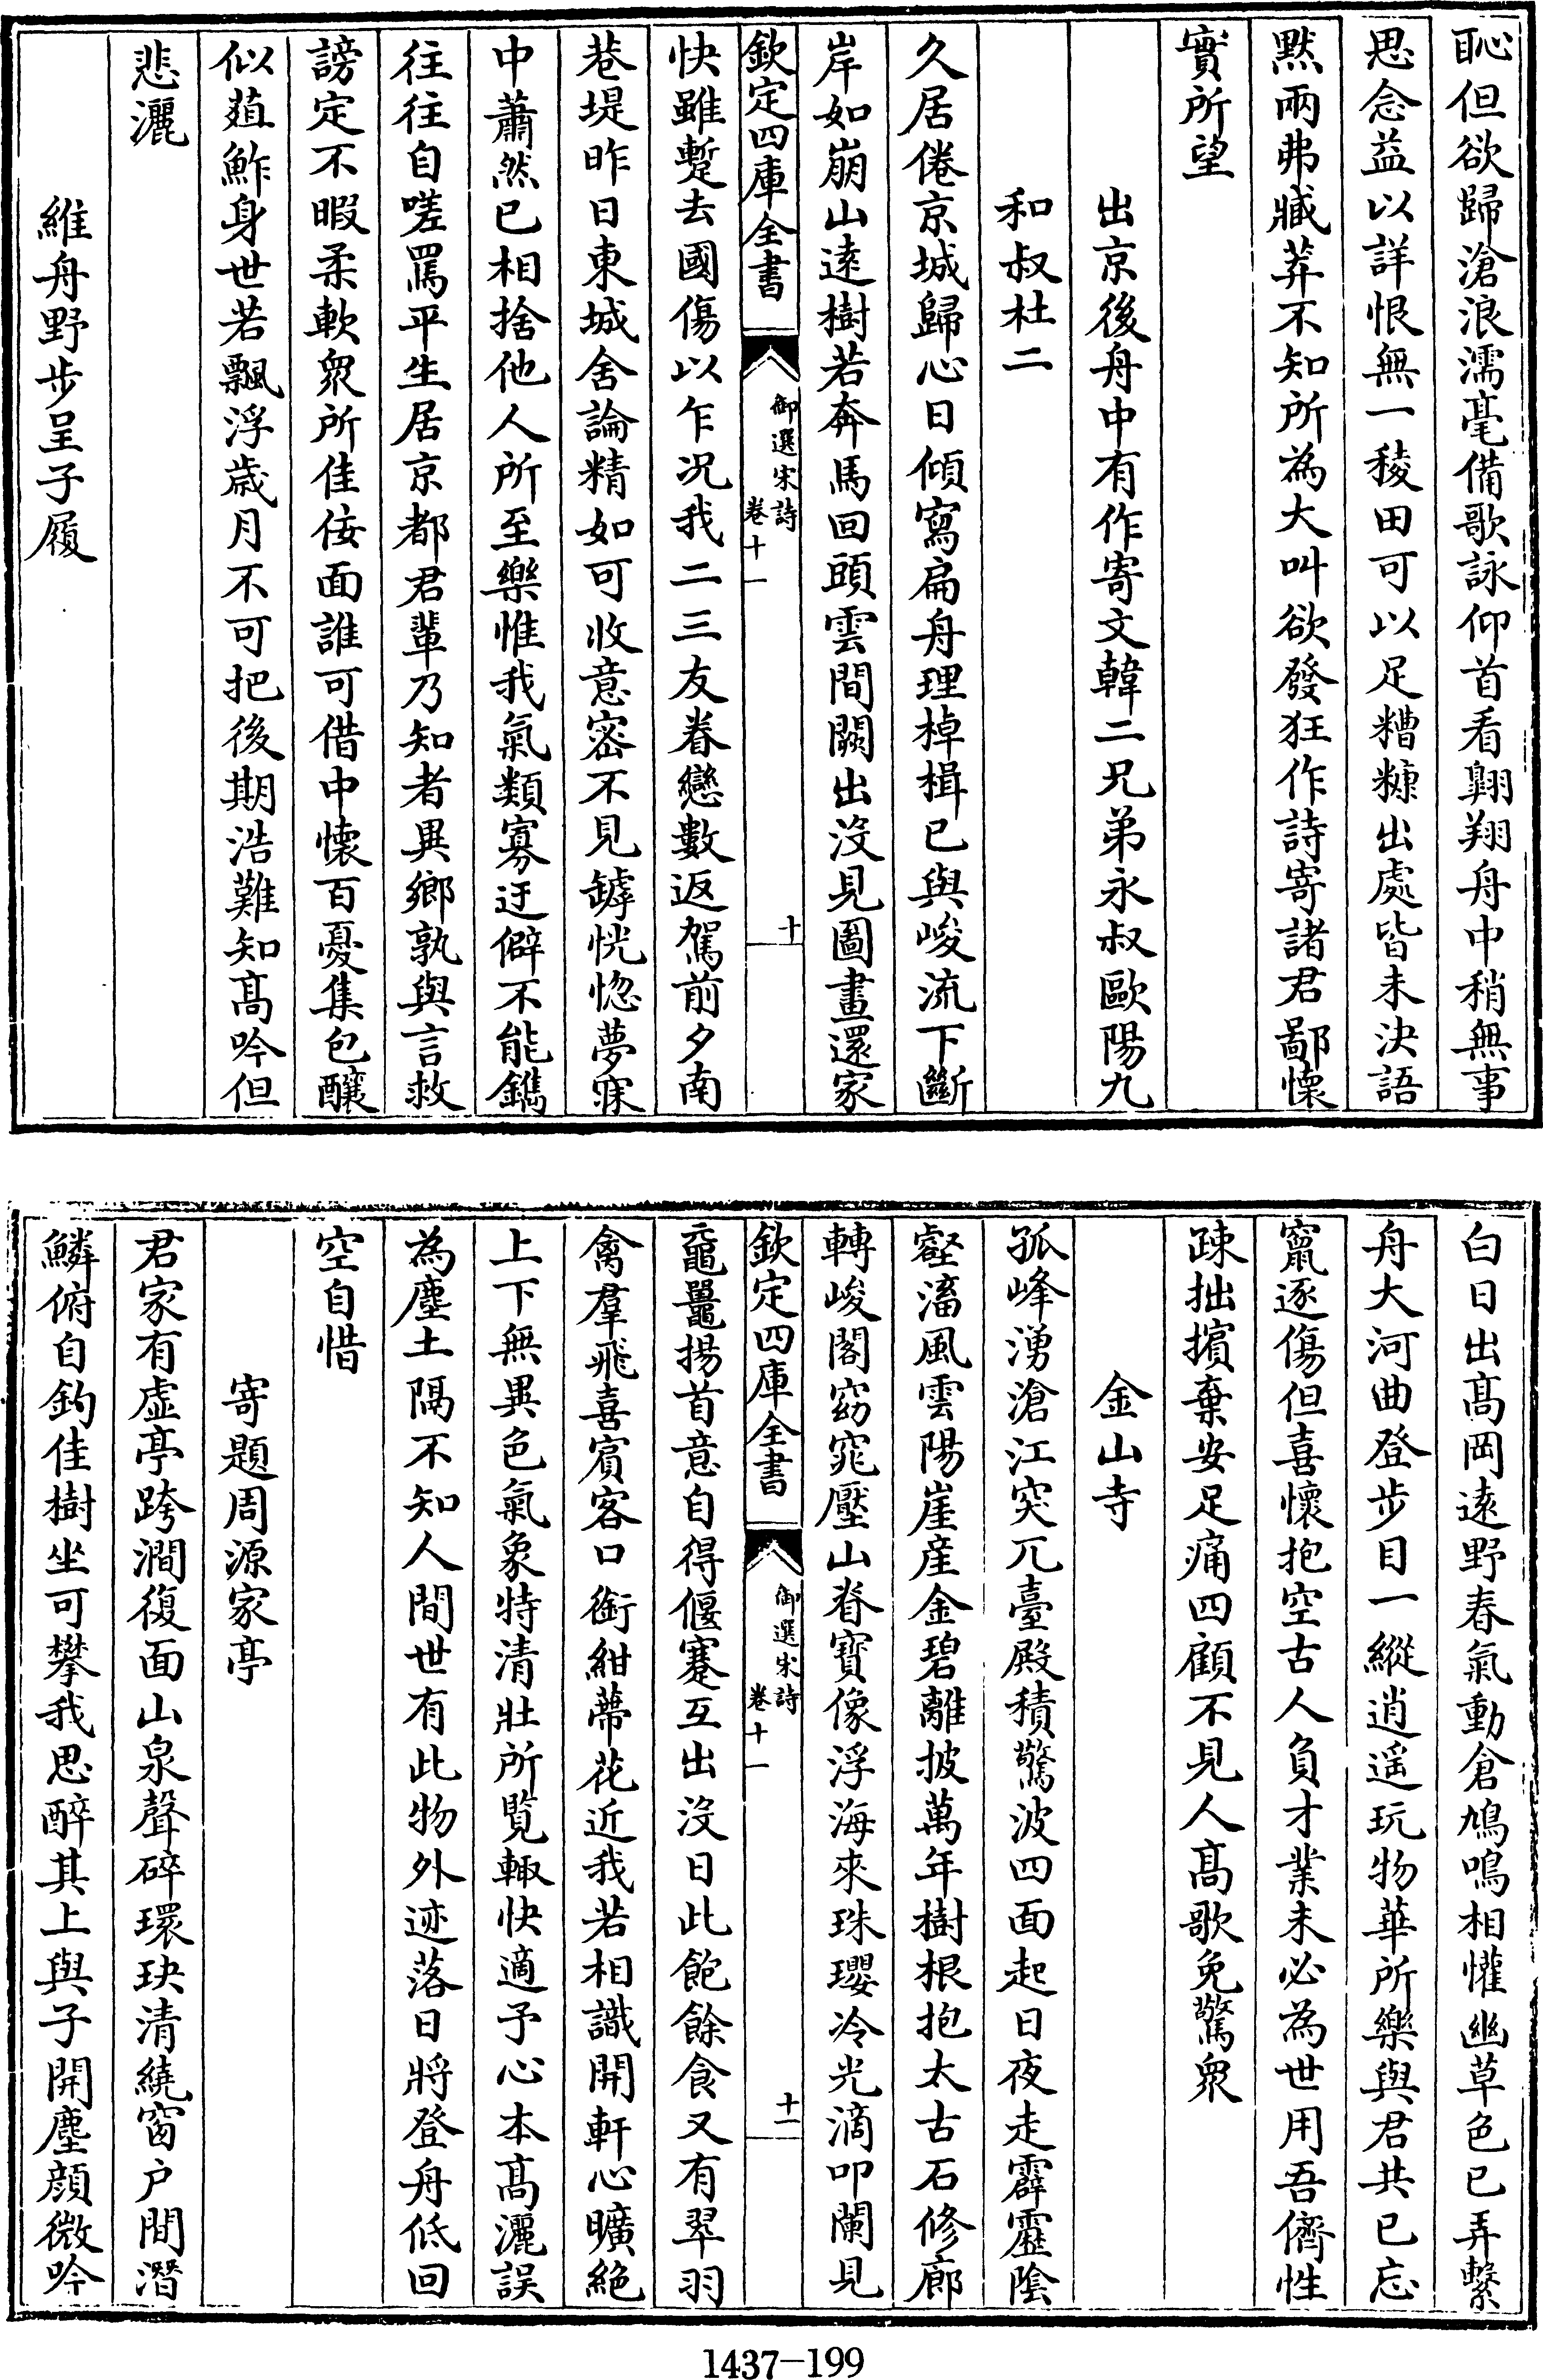 恥但欲歸滄浪濡毫備歌詠仰首看翺翔舟中稍無事
思念益以詳恨無一稜田可以足糟糠出處皆未決語
黙兩弗臧莽不知所為大叫欲發狂作詩寄諸君鄙懷
實所望
出京後舟中有作寄文韓二兄弟永叔歐陽九
和叔杜二
久居倦京城歸心日傾寫扁舟理棹楫已與峻流下斷
岸如崩山逺樹若奔馬回頭雲間闕出沒見圖畫還家
欽定四庫全書
御選宋詩
卷十一
十
快雖蹔去國傷以乍況我二三友眷戀數返駕前夕南
巷堤昨日東城舍論精如可收意密不見罅恍惚夢寐
中蕭然已相捨他人所至樂惟我氣類寡迂僻不能鐫
往往自嗟罵平生居京都君輩乃知者異鄉孰與言救
謗定不暇柔軟衆所佳佞面誰可借中懷百憂集包釀
似葅鮓身世若飄浮歳月不可把後期浩難知髙吟但
悲灑
維舟野步呈子履
白日出髙岡逺野春氣動倉鳩鳴相懽幽草色已弄繫
舟大河曲登步目一縱逍遥玩物華所樂與君共已忘
竄逐傷但喜懷抱空古人負才業未必為世用吾儕性
疎拙擯棄安足痛四顧不見人髙歌免驚衆
金山寺
孤峰湧滄江突兀臺殿積驚波四面起日夜走霹靂陰
壑滀風雲陽崖産金碧離披萬年樹根抱太古石修廊
轉峻閣窈窕壓山脊寳像浮海來珠瓔冷光滴叩闌見
欽定四庫全書
御選宋詩
卷十一
十一
黿鼉揚首意自得偃蹇互出沒日此飽餘食又有翠羽
禽羣飛喜賓客口銜紺蔕花近我若相識開軒心曠絶
上下無異色氣象特清壯所覧輙快適予心本髙灑誤
為塵土隔不知人間世有此物外迹落日將登舟低回
空自惜
寄題周源家亭
君家有虚亭跨澗復面山泉聲碎環玦清繞窗户間潛
鱗俯自釣佳樹坐可攀我思醉其上與子開塵顔微吟
1437-199